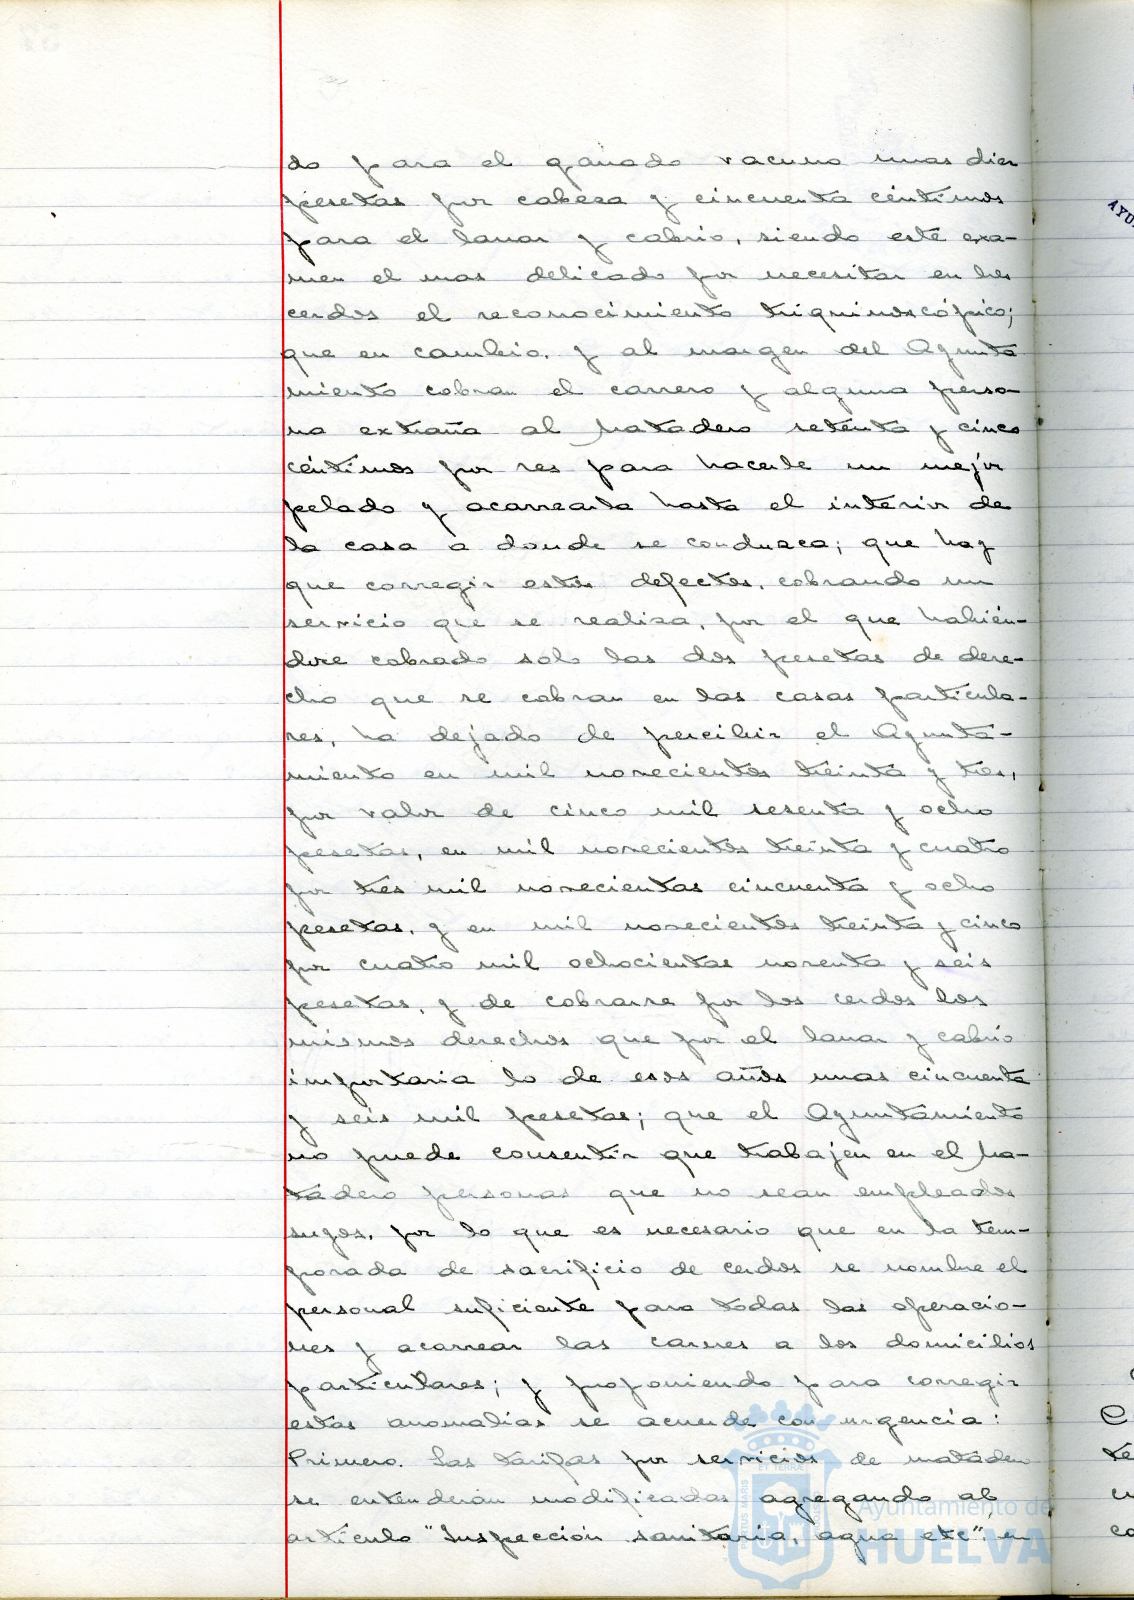 do para el ganado vacuno unas diez
pesetas por cabeza y cincuenta céntimos
para el lanar y cabrio, siendo este exa-
men el mas delicado por necesitar en los
cerdos el reconocimiento triquinoscópico;
que en cambio, y al margen del Ayunta
miento cobran el carrero y alguna perso-
na extraña al Matadero setenta y cinco
céntimos por res para hacerle un mejor
pelado y acarrearla hasta el interior de
la casa a donde se conduzca; que hay
que corregir estos defectos, cobrando un
servicio que se realiza, por el que habién-
dose cobrado solo las dos pesetas de dere-
cho que se cobran en las casas particula-
res, ha dejado de percibir el Ayunta-
miento en mil novecientos treinta y tres,
por valor de cinco mil sesenta y ocho
pesetas, en mil novecientos treinta y cuatro
por tres mil novecientas cincuenta y ocho
pesetas, y en mil novecientos treinta y cinco
por cuatro mil ochocientas noventa y seis
pesetas, y de cobrarse por los cerdos los
mismos derechos que por el lanar y cabrio
importaria lo de esos años unas cincuenta
y seis mil pesetas; que el Ayuntamiento
no puede consentir que trabajen en el Ma-
tadero personas que no sean empleados
suyos, por lo que es necesario que en la tem-
porada de sacrificio de cerdos se nombre el
personal suficiente para todas las operacio-
nes y acarrear las carnes a los domicilios
particulares; y proponiendo para corregir
estas anomalias se acuerde con urgencia:
Primero. Las tarifas por servicios de matadero
se entenderán modificadas agregando al
artículo "Inspección sanitaria, agua etc" en
Ayuntamiento de
HUELVA